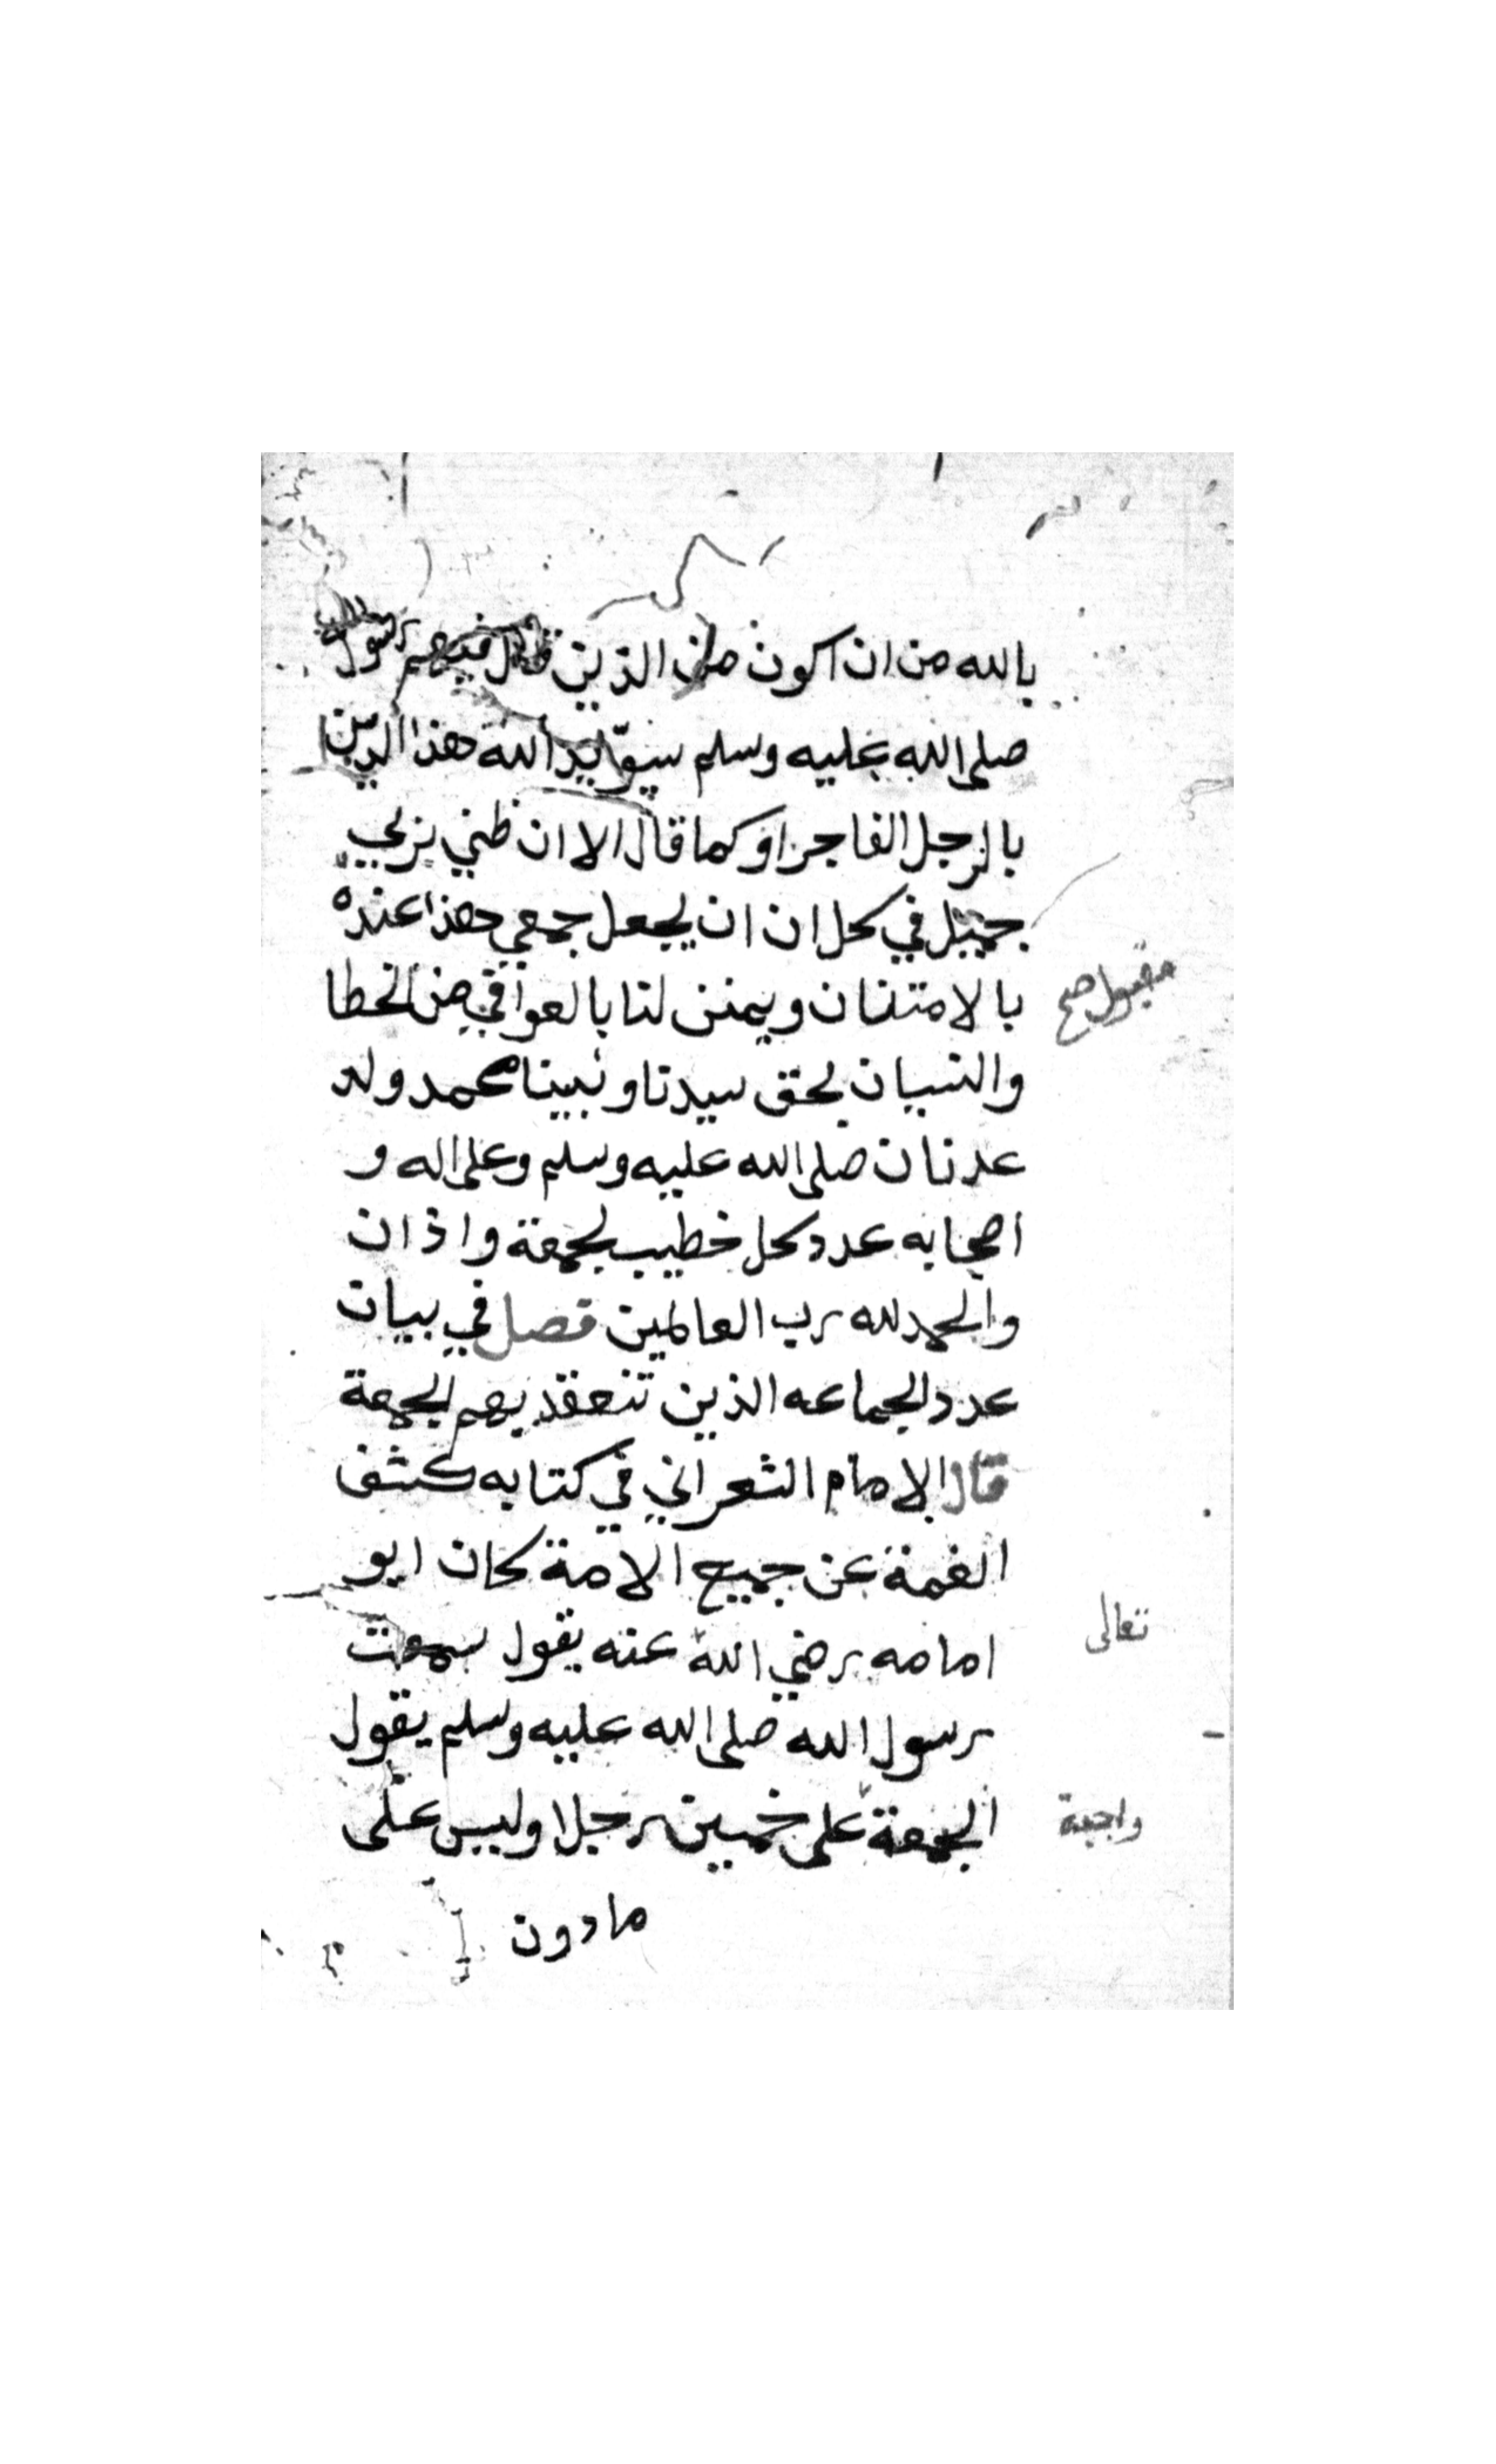 بالله من ان اكون من الذين قال فيهم رسول
صلى الله عليه وسلم سيؤيد الله هذا الدين
بالرجل الفاجر او كما قال الا ان ظني بربي
جميل في كل ان ان يجعل جمعي هذا عنده
مقبول صح
بالامتنان ويمنن لنا بالعوافي من الخطا
والنسيان بحق سيدنا ونبينا محمد ولد
عدنان صلى الله عليه وسلم وعلى اله و
اصحابه عدد كل خطيب لجمعة واذان
والحمد لله رب العالمين فصل في بيان
عدد الجماعه الذين تنعقد بهم الجمعة
قال الامام الشعراني في كتابه كشف
الغمة عن جميع الامة كان ابو
امامه رضي الله عنه يقول سمعت
تعالى
رسول الله صلى الله عليه وسلم يقول
الجمعة على خمسين رجلا وليس على
واجبة
مادون